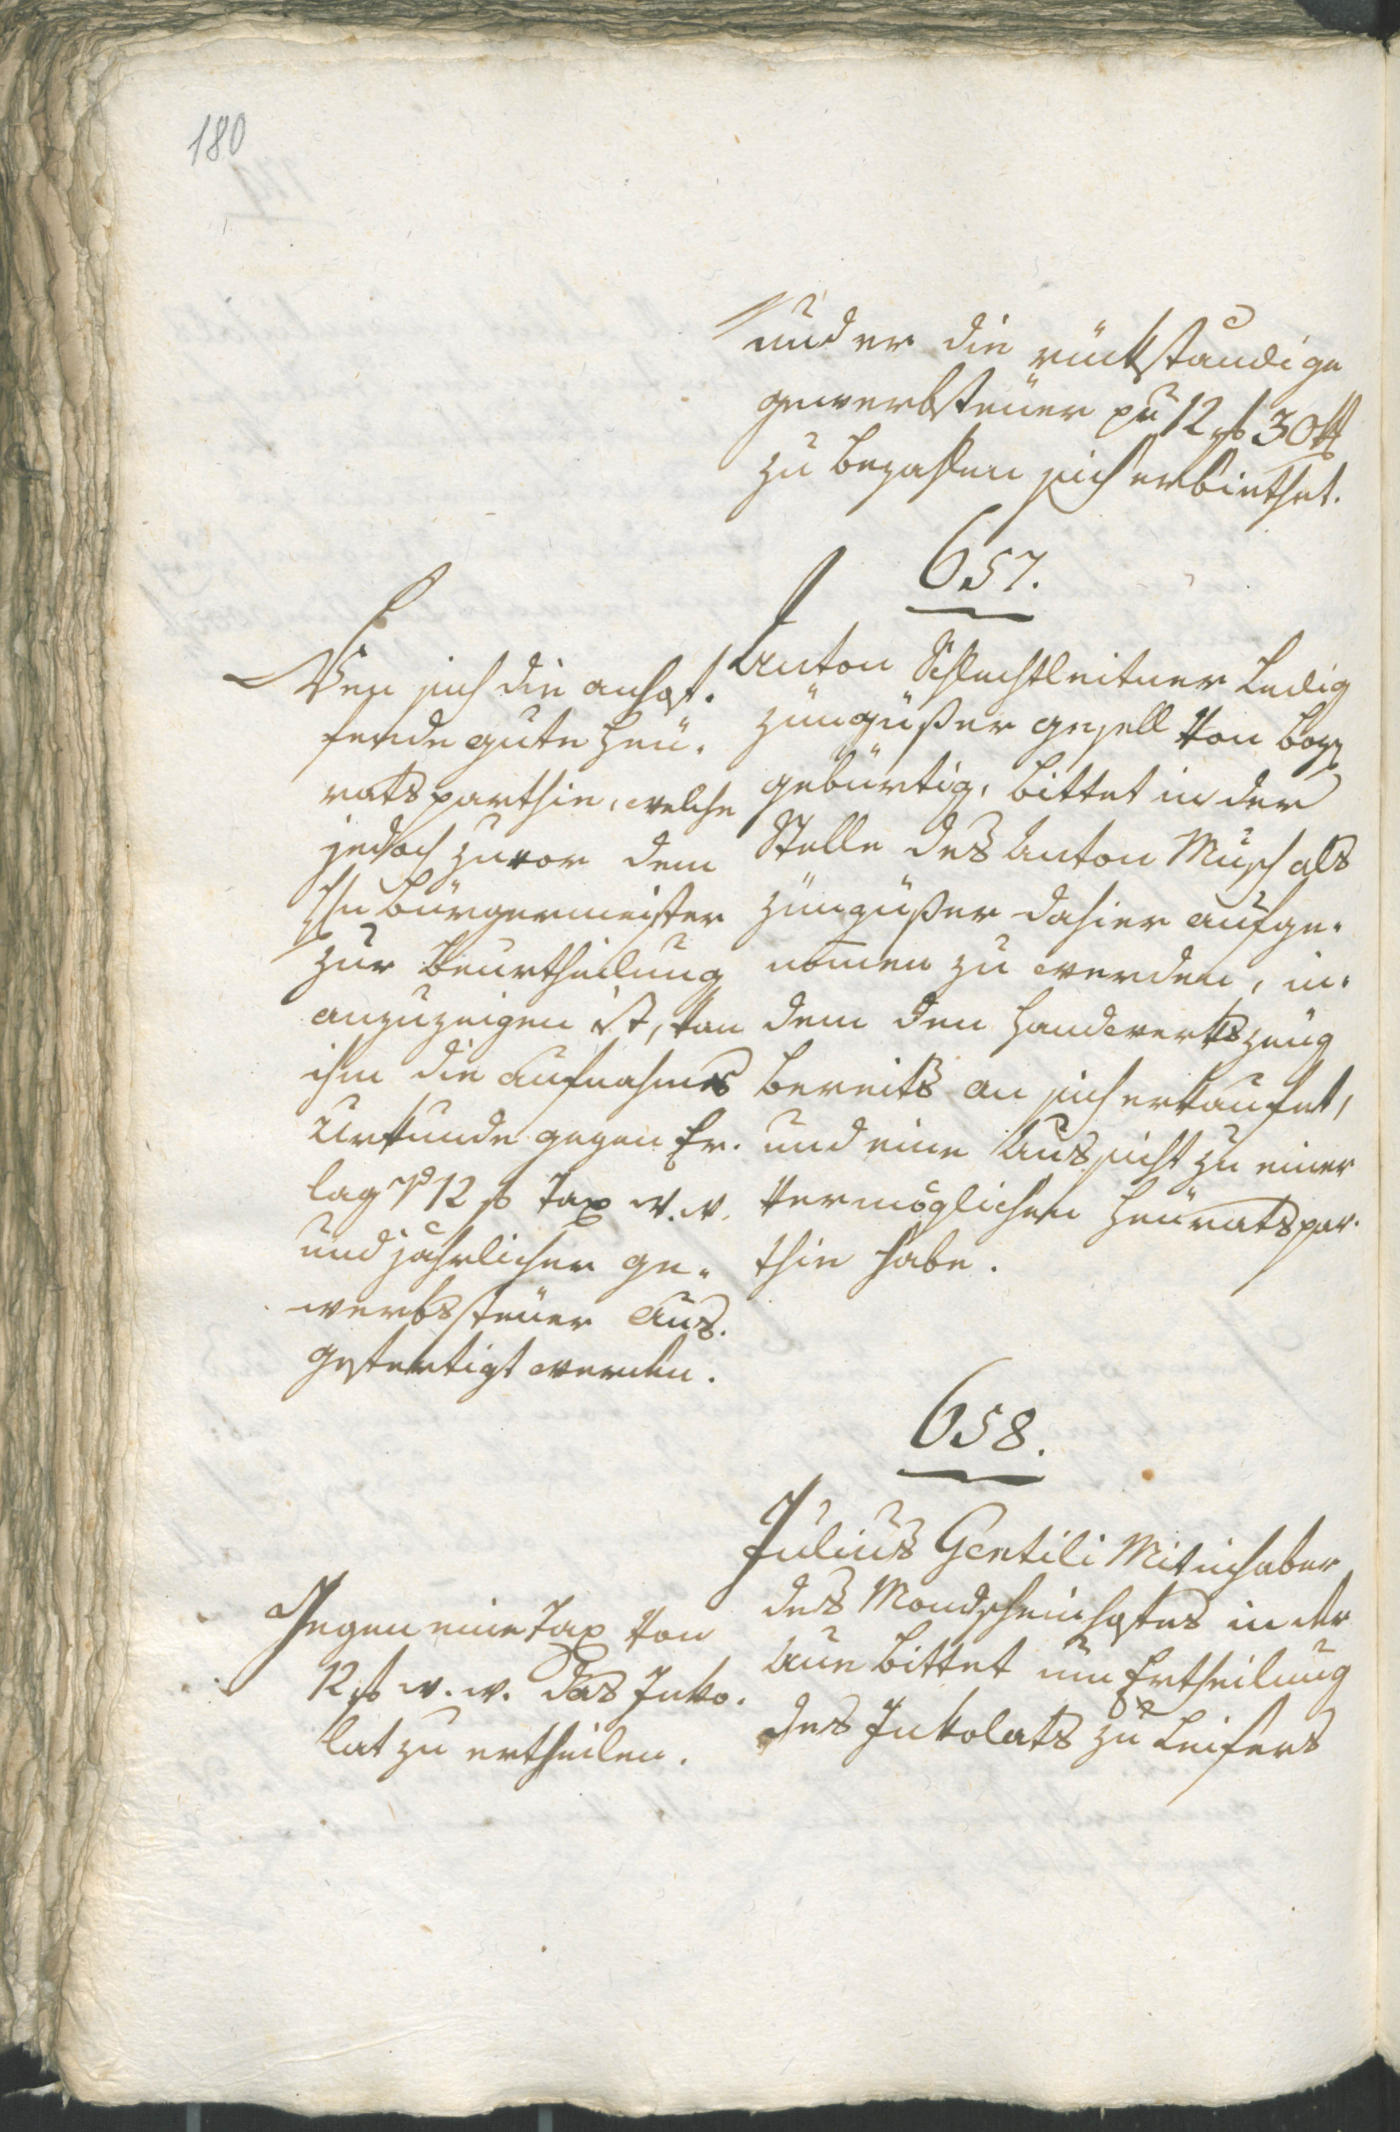 180
und er die rückständige
gewerbsteüer pr 12 f 30 x
zu bezahlen sich erbiethet.
657.
Anton Schlechtleitner ledig
züngüßer gesell von boz
gebürtig, bittet in der
Stelle des Anton Musch als
züngüßer dahier aufge-
nomen zu werden, in-
dem den Handwerkszeug
bereits an sich erkaufet,
und eine Aussicht zu einer
vermöglichen Heüratspar-
thie habe.
Wen sich die anhof-
fende gute Heü-
ratsparthie, welche
jedoch zuvor dem
Hn Bürgermeister
zur Beurtheilung
anzuzeigen ist, kan
ihm die Aufnahms
Urkunde gegen Er-
lag pr 12 f Tax w. w.
und jährlicher ge-
werbssteüer aus-
gefertigt werden.
658.
Julius Gentili Mitinhaber
des Mondscheinhofes in der
Aue bittet um Ertheilung
des Inkolats zu Leifers
Gegen eine Tax von
12 f w. w. das Inko-
lat zu ertheilen.